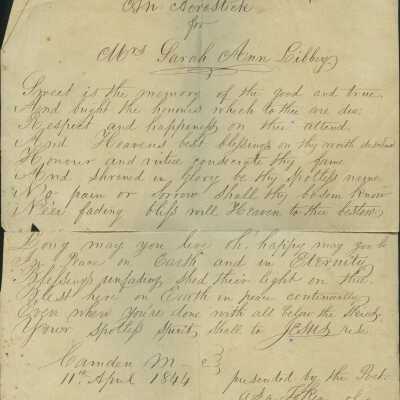 An Acrostick
for
Mrs Sarah Ann Libbey
Sweet is the memory of the good and true
And bright the honours which to thee are due
Respect and happiness on thee attend
And Heavens best blessings on thy worth descend
Honour and virtue consecrate thy fame
And shrewd in glory be thy spotless name
No pain or sorrow shall thy bosom know
Neer fading bliss will Heaven to thee bestow
Long may you live oh! happy may you be
In Peace on Earth and in Eternity
Blessings unfading shed their light on thee
Blest here on Earth in peace continually
Even when you're done with all below the skies
Your spotless spirit shall to JESUS rise
Camden M
11th April 1844
presented by the Poet